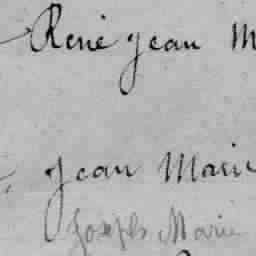 René Jean M
Jean Marie
Joseph Marie